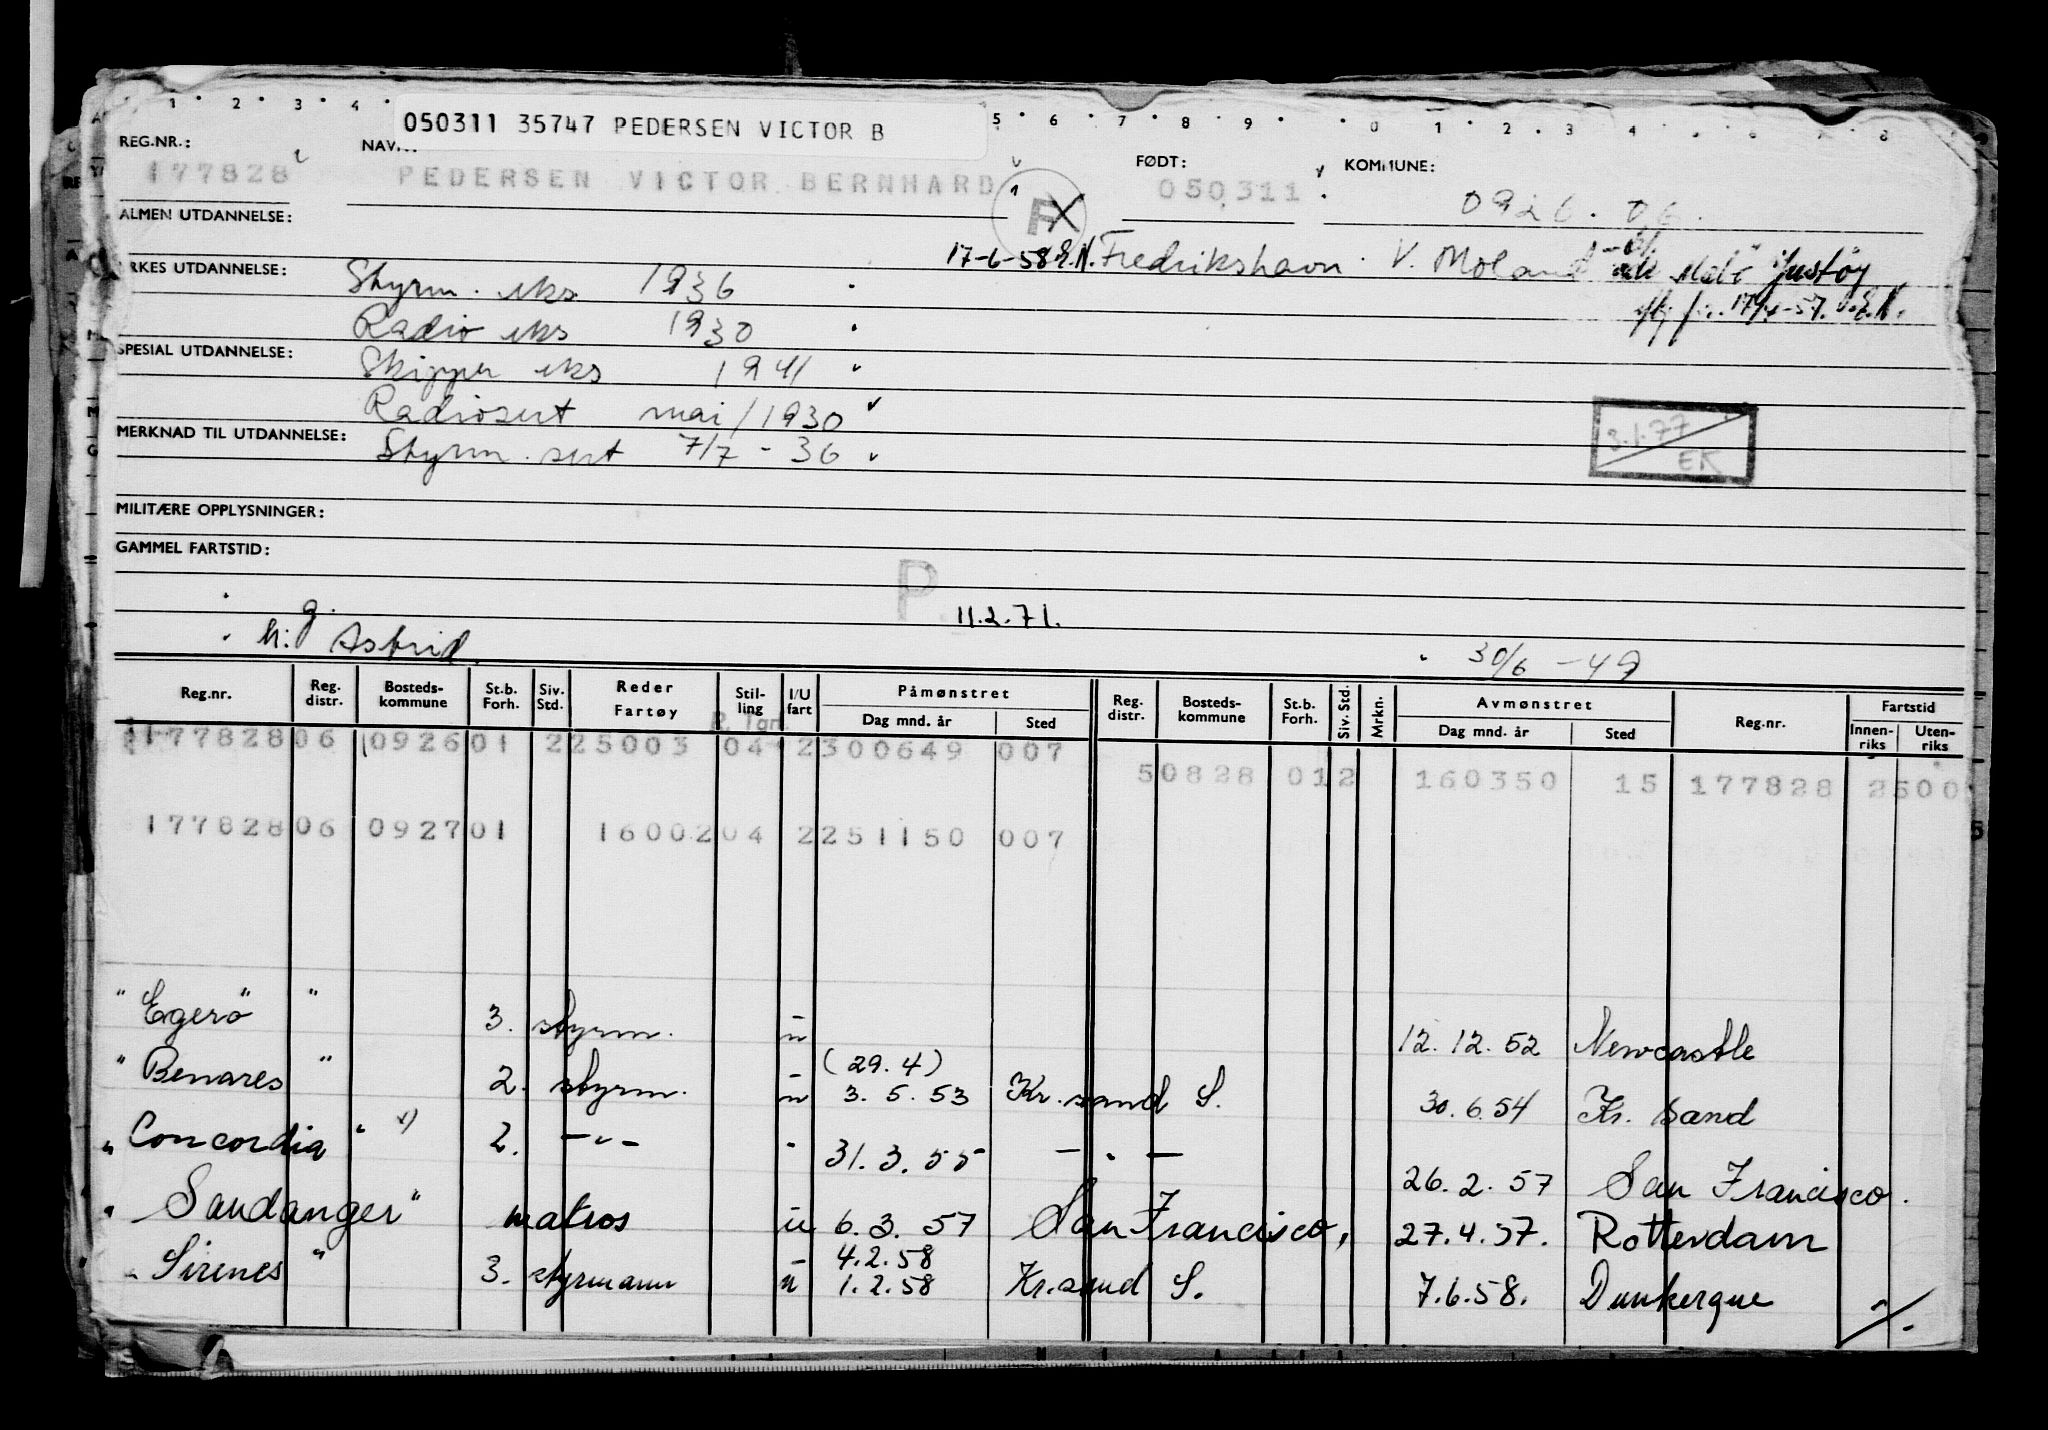 050311 35747 PEDERSEN VICTOR B
REG.NR.: NAVN: FØDT: KOMMUNE:
177828 PEDERSEN VICTOR BERNHARD 050311 0926.06.
ALMEN UTDANNELSE:
17-6-58 E.N. Fredrikshavn. V. Moland Justøy
YRKES UTDANNELSE: Styrm. eks 1936
Radio eks 1930
SPESIAL UTDANNELSE: Skipper eks 1941
Radiosert mai/1930
3.1.77
EK
MERKNAD TIL UTDANNELSE: Styrm. sert 7/7 - 36
MILITÆRE OPPLYSNINGER:
GAMMEL FARTSTID:
P 11.2.71.
g.
h: Astrid. 30/6 - 49
Reg.nr. Reg. distr. Bosteds-kommune St.b. Forh. Siv. Std. Reder Fartøy Stil-ling I/U fart Påmønstret Dag mnd. år Sted Reg. distr. Bosteds-kommune St.b. Forh. Siv. Std. Mrkn. Avmønstret Dag mnd. år Sted Reg.nr. Fartstid Innen-riks Uten-riks
177828 06 0926 01 2 25003 04 2 300649 007
50828 012 160350 15 177828 2500
177828 06 0927 01 16002 04 2 251150 007
"Egerö" " 3. styrm. u 12.12.52 Newcastle
"Benares" 2. styrm. u (29.4) 3.5.53 Kr.sand S. 30.6.54 Kr. Sand
"Concordia" 2. -"- - 31.3.55 - " - 26.2.57 San Francisco.
"Sandanger" matros u 6.3.57 San Francisco, 27.4.57. Rotterdam
4.2.58
"Sirenes" 3. styrmann u 1.2.58 Kr.sand S. 7.6.58. Dunkerque